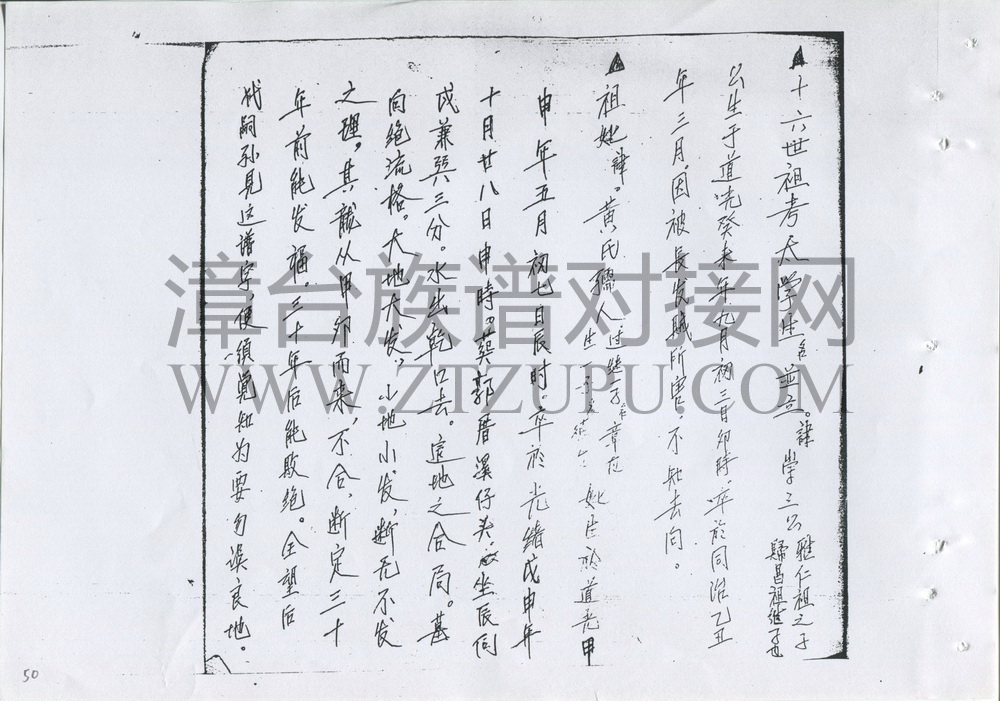 十六世祖考太学生名並立。諱崇三公 雅仁祖之子
歸昌祖继子也
公生于道光癸未年九月初三日卯時，卒於同治乙丑
年三月，因被長发贼所害，不知去向。
祖妣諱。黄氏孺人 妣生於道光甲
申年五月初七日辰时。卒於光緒戊申年
十月廿八日申時。葵郭厝溪仔头，坐辰向
戌兼巽三分。水出乾口去。這地之合局。基
向绝流格。大地大发，小地小发，断无不发
之理。其龍从甲卯而来，不合，断定三十
年前能发福。三十年后能敗绝。全望后
代嗣孙見这譜字，便须覺知为要勿误良地。
50
漳台族谱对接网
WWW.ZTZUPU.COM